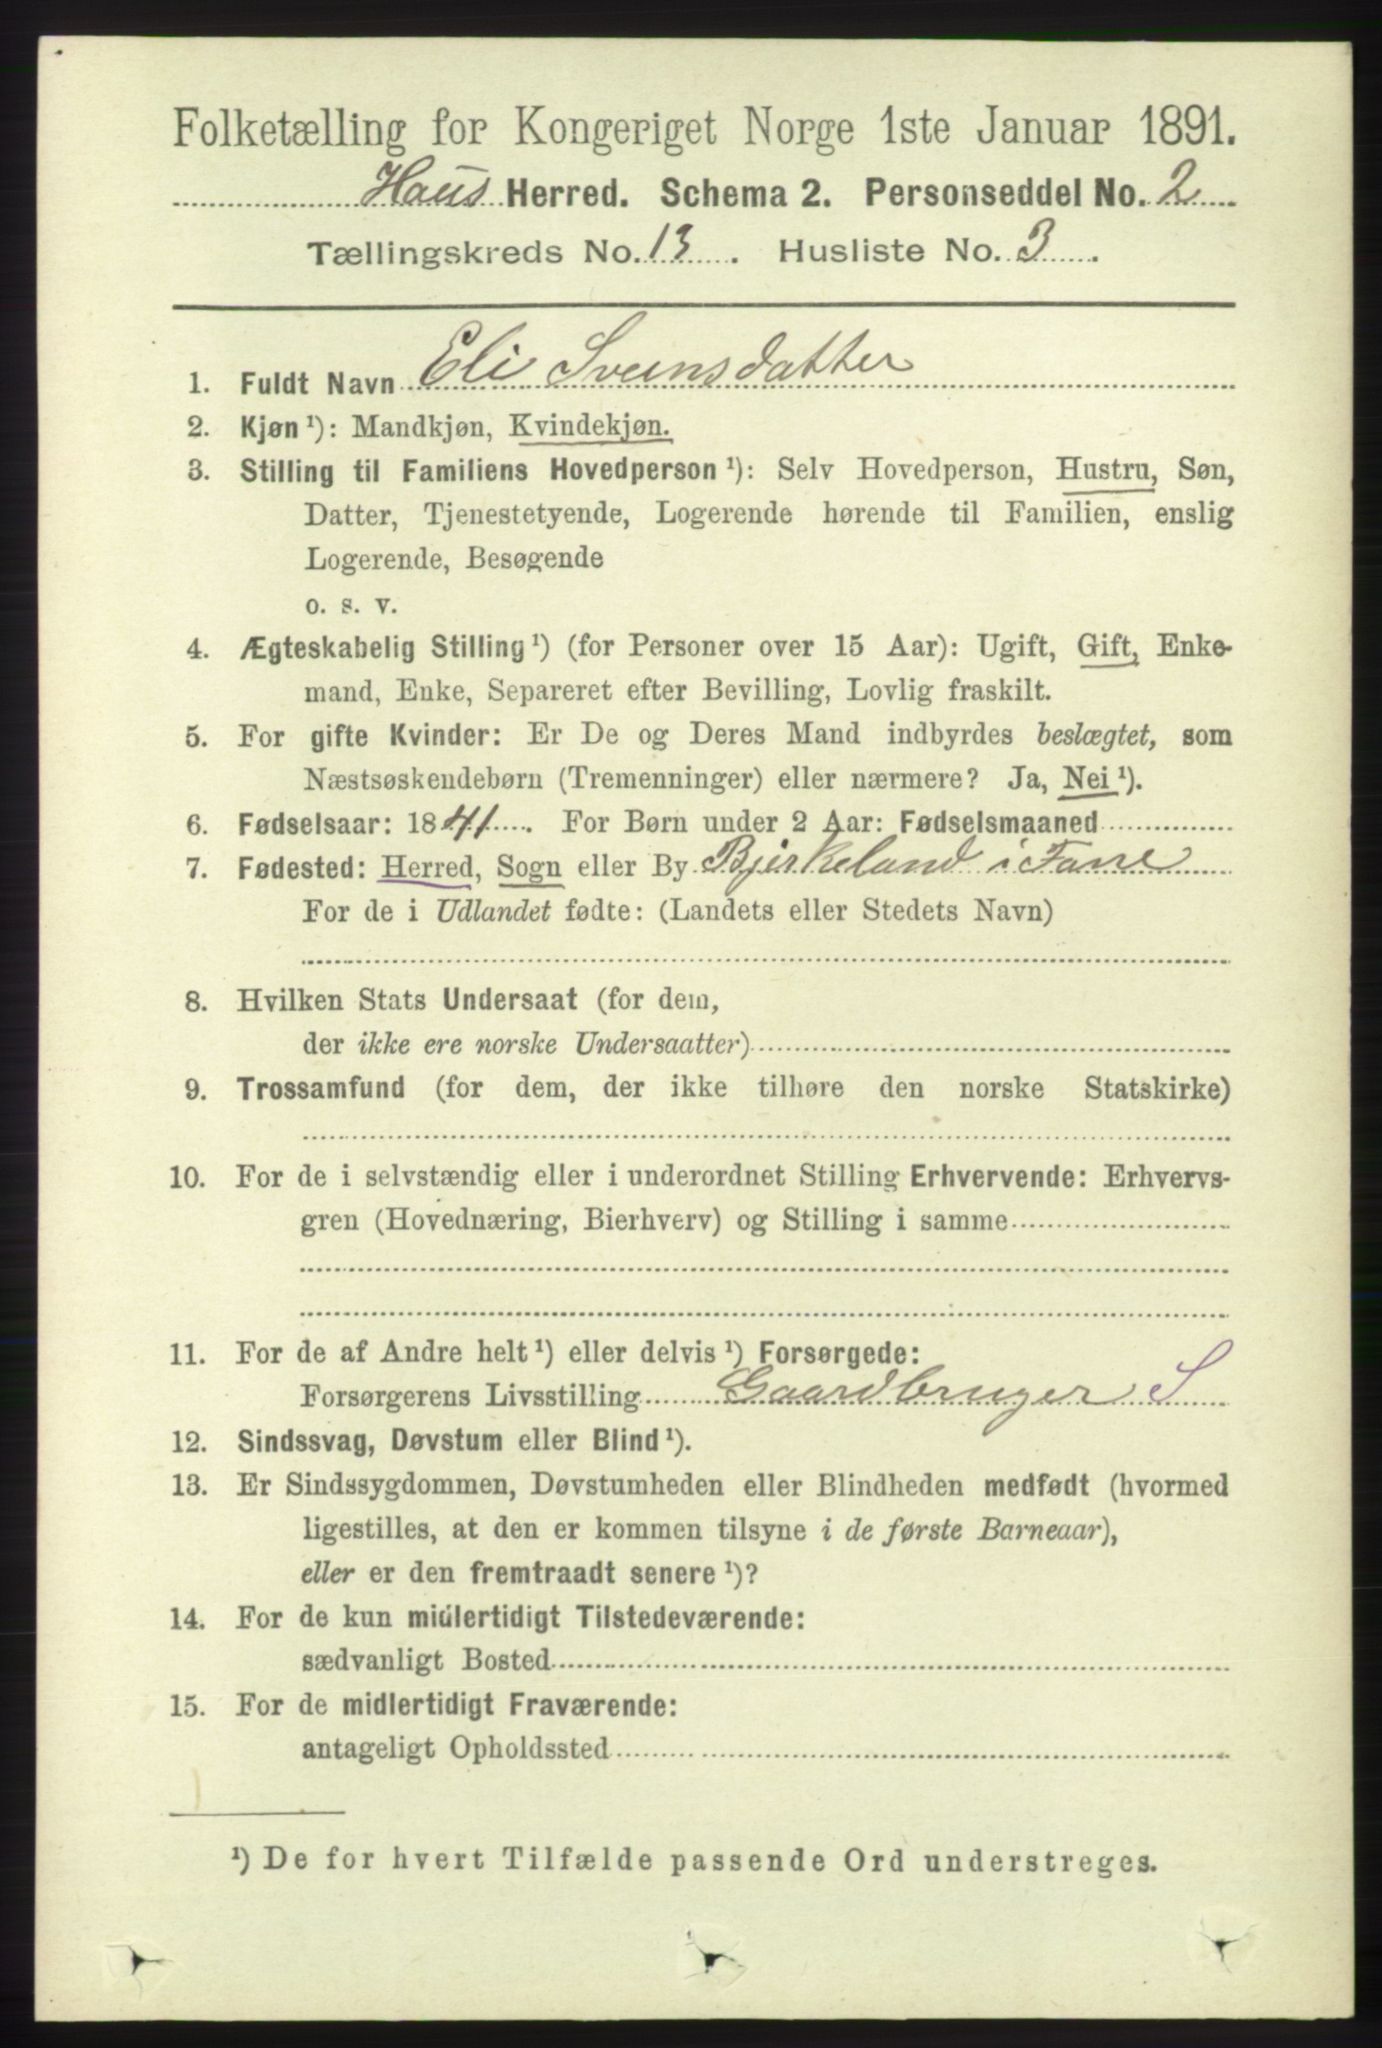 Folketælling for Kongeriget Norge 1ste Januar 1891.
Haus Herred. Schema 2. Personseddel No. 2
Tællingskreds No. 13. Husliste No. 3.
1. Fuldt Navn Eli Svensdatter
2. Kjøn ¹): Mandkjøn, Kvindekjøn.
3. Stilling til Familiens Hovedperson ¹): Selv Hovedperson, Hustru, Søn,
Datter, Tjenestetyende, Logerende hørende til Familien, enslig
Logerende, Besøgende
o. s. v.
4. Ægteskabelig Stilling ¹) (for Personer over 15 Aar): Ugift, Gift, Enke-
mand, Enke, Separeret efter Bevilling, Lovlig fraskilt.
5. For gifte Kvinder: Er De og Deres Mand indbyrdes beslægtet, som
Næstsøskendebørn (Tremenninger) eller nærmere? Ja, Nei ¹).
6. Fødselsaar: 1841. For Børn under 2 Aar: Fødselsmaaned
7. Fødested: Herred, Sogn eller By Bjerkeland i
For de i Udlandet fødte: (Landets eller Stedets Navn)
8. Hvilken Stats Undersaat (for dem,
der ikke ere norske Undersaatter)
9. Trossamfund (for dem, der ikke tilhøre den norske Statskirke)
10. For de i selvstændig eller i underordnet Stilling Erhvervende: Erhvervs-
gren (Hovednæring, Bierhverv) og Stilling i samme
11. For de af Andre helt ¹) eller delvis ¹) Forsørgede:
Forsørgerens Livsstilling Gaardbruger S
12. Sindssvag, Døvstum eller Blind ¹).
13. Er Sindssygdommen, Døvstumheden eller Blindheden medfødt (hvormed
ligestilles, at den er kommen tilsyne i de første Barneaar),
eller er den fremtraadt senere ¹)?
14. For de kun midlertidigt Tilstedeværende:
sædvanligt Bosted
15. For de midlertidigt Fraværende:
antageligt Opholdssted
¹) De for hvert Tilfælde passende Ord understreges.